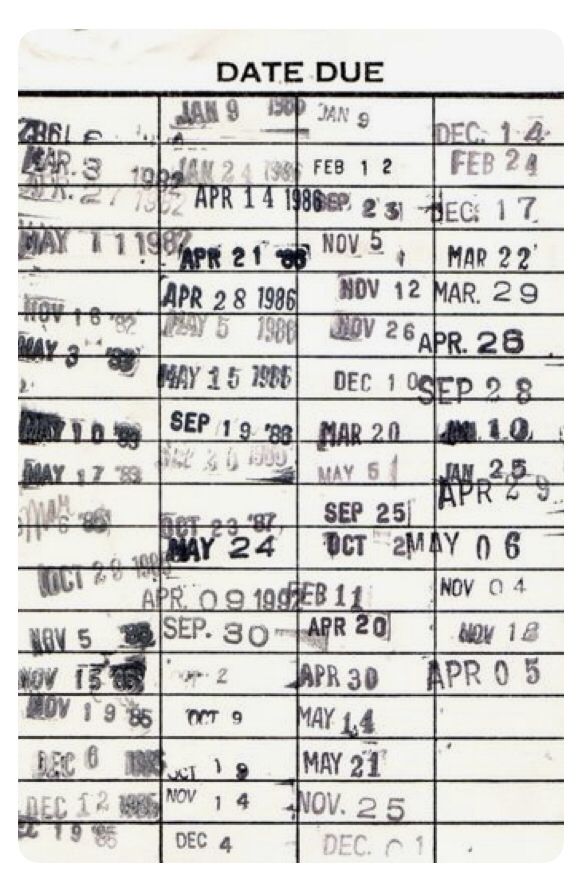 DATE DUE
MAR. 3 1982
APR. 27 1982
MAY 11 1982
NOV 16 '82
MAY 3 '83
MAY 10 '83
MAY 17 '83
OCT 28 1985
NOV 5
NOV 15 '85
NOV 19 '85
DEC 6 1985
DEC 12 1985
DEC 19 '85
JAN 9 1986
JAN 24 1986
APR 14 1986
APR 21 '86
APR 28 1986
MAY 5 1986
MAY 15 1986
SEP 19 '86
OCT 23 '87
MAY 24
APR. 09 1992
SEP. 30
2
OCT 9
OCT 19
NOV 14
DEC 4
JAN 9
FEB 12
SEP. 23
NOV 5
NOV 12
NOV 26
DEC 10
MAR 20
MAY 5
SEP 25
OCT 2
FEB 11
APR 20
APR 30
MAY 14
MAY 21
NOV. 25
DEC. 01
DEC. 14
FEB 24
DEC. 17
MAR 22
MAR. 29
APR. 26
SEP 28
JAN. 10
JAN 25
APR 29
MAY 06
NOV 04
NOV 18
APR 05